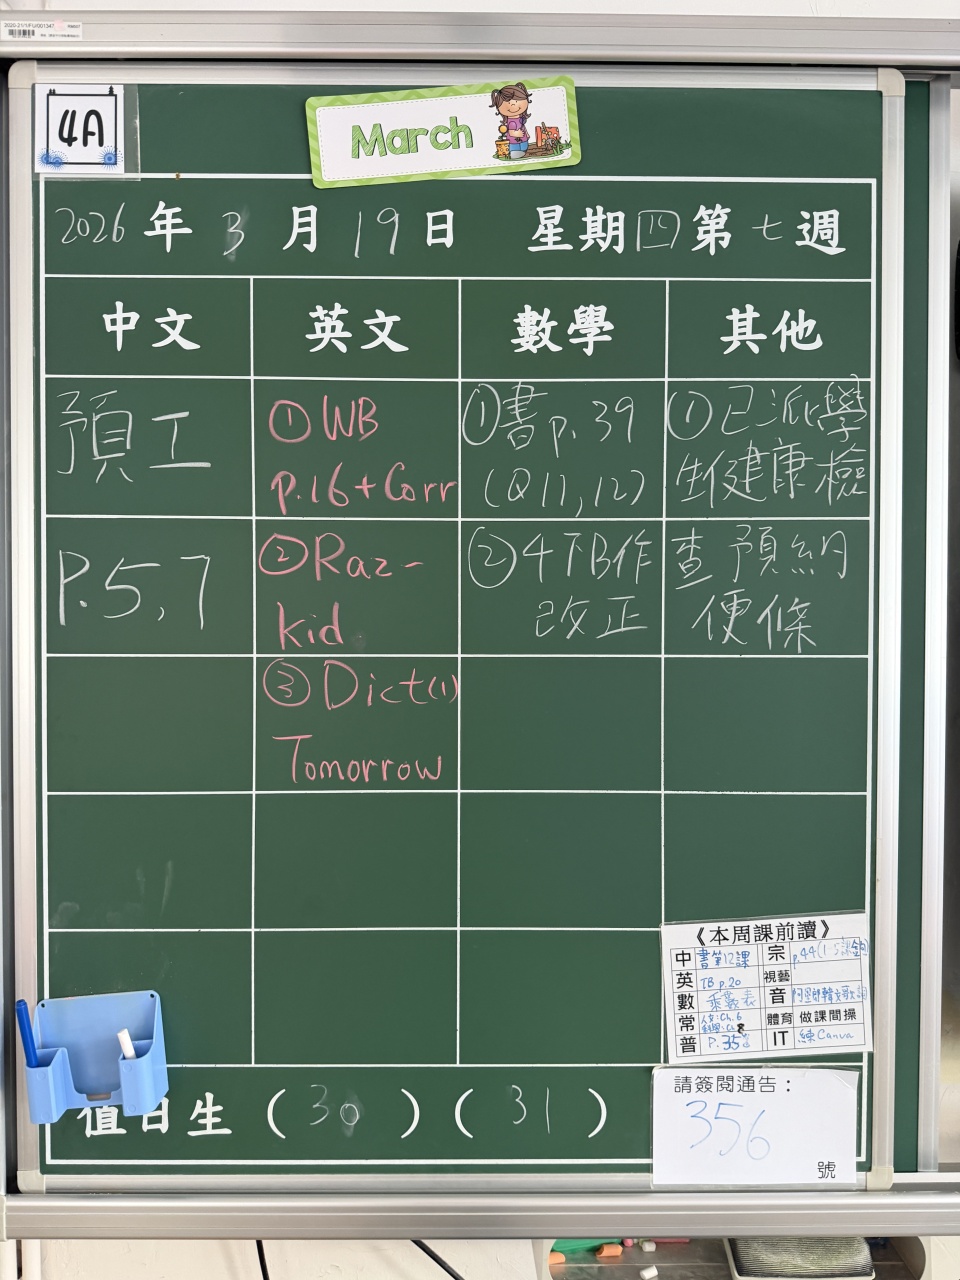 4A
March
2026年3月19日 星期四第七週
中文
英文
數學
其他
預工
P.5,7
①WB
p.16+Corr
②Raz-
kid
③Dict(1)
Tomorrow
①書p.39
(Q11,12)
②4下B作
改正
①已派學
生健康檢
查預約
便條
《本周課前讀》
中 書第12課
英 TB p.20
數 乘數表
常 人文:Ch.6
普 P.35
宗 p.44
視藝
音
體育 做課間操
IT 練Canva
值日生(30)(31)
請簽閱通告:
356
號